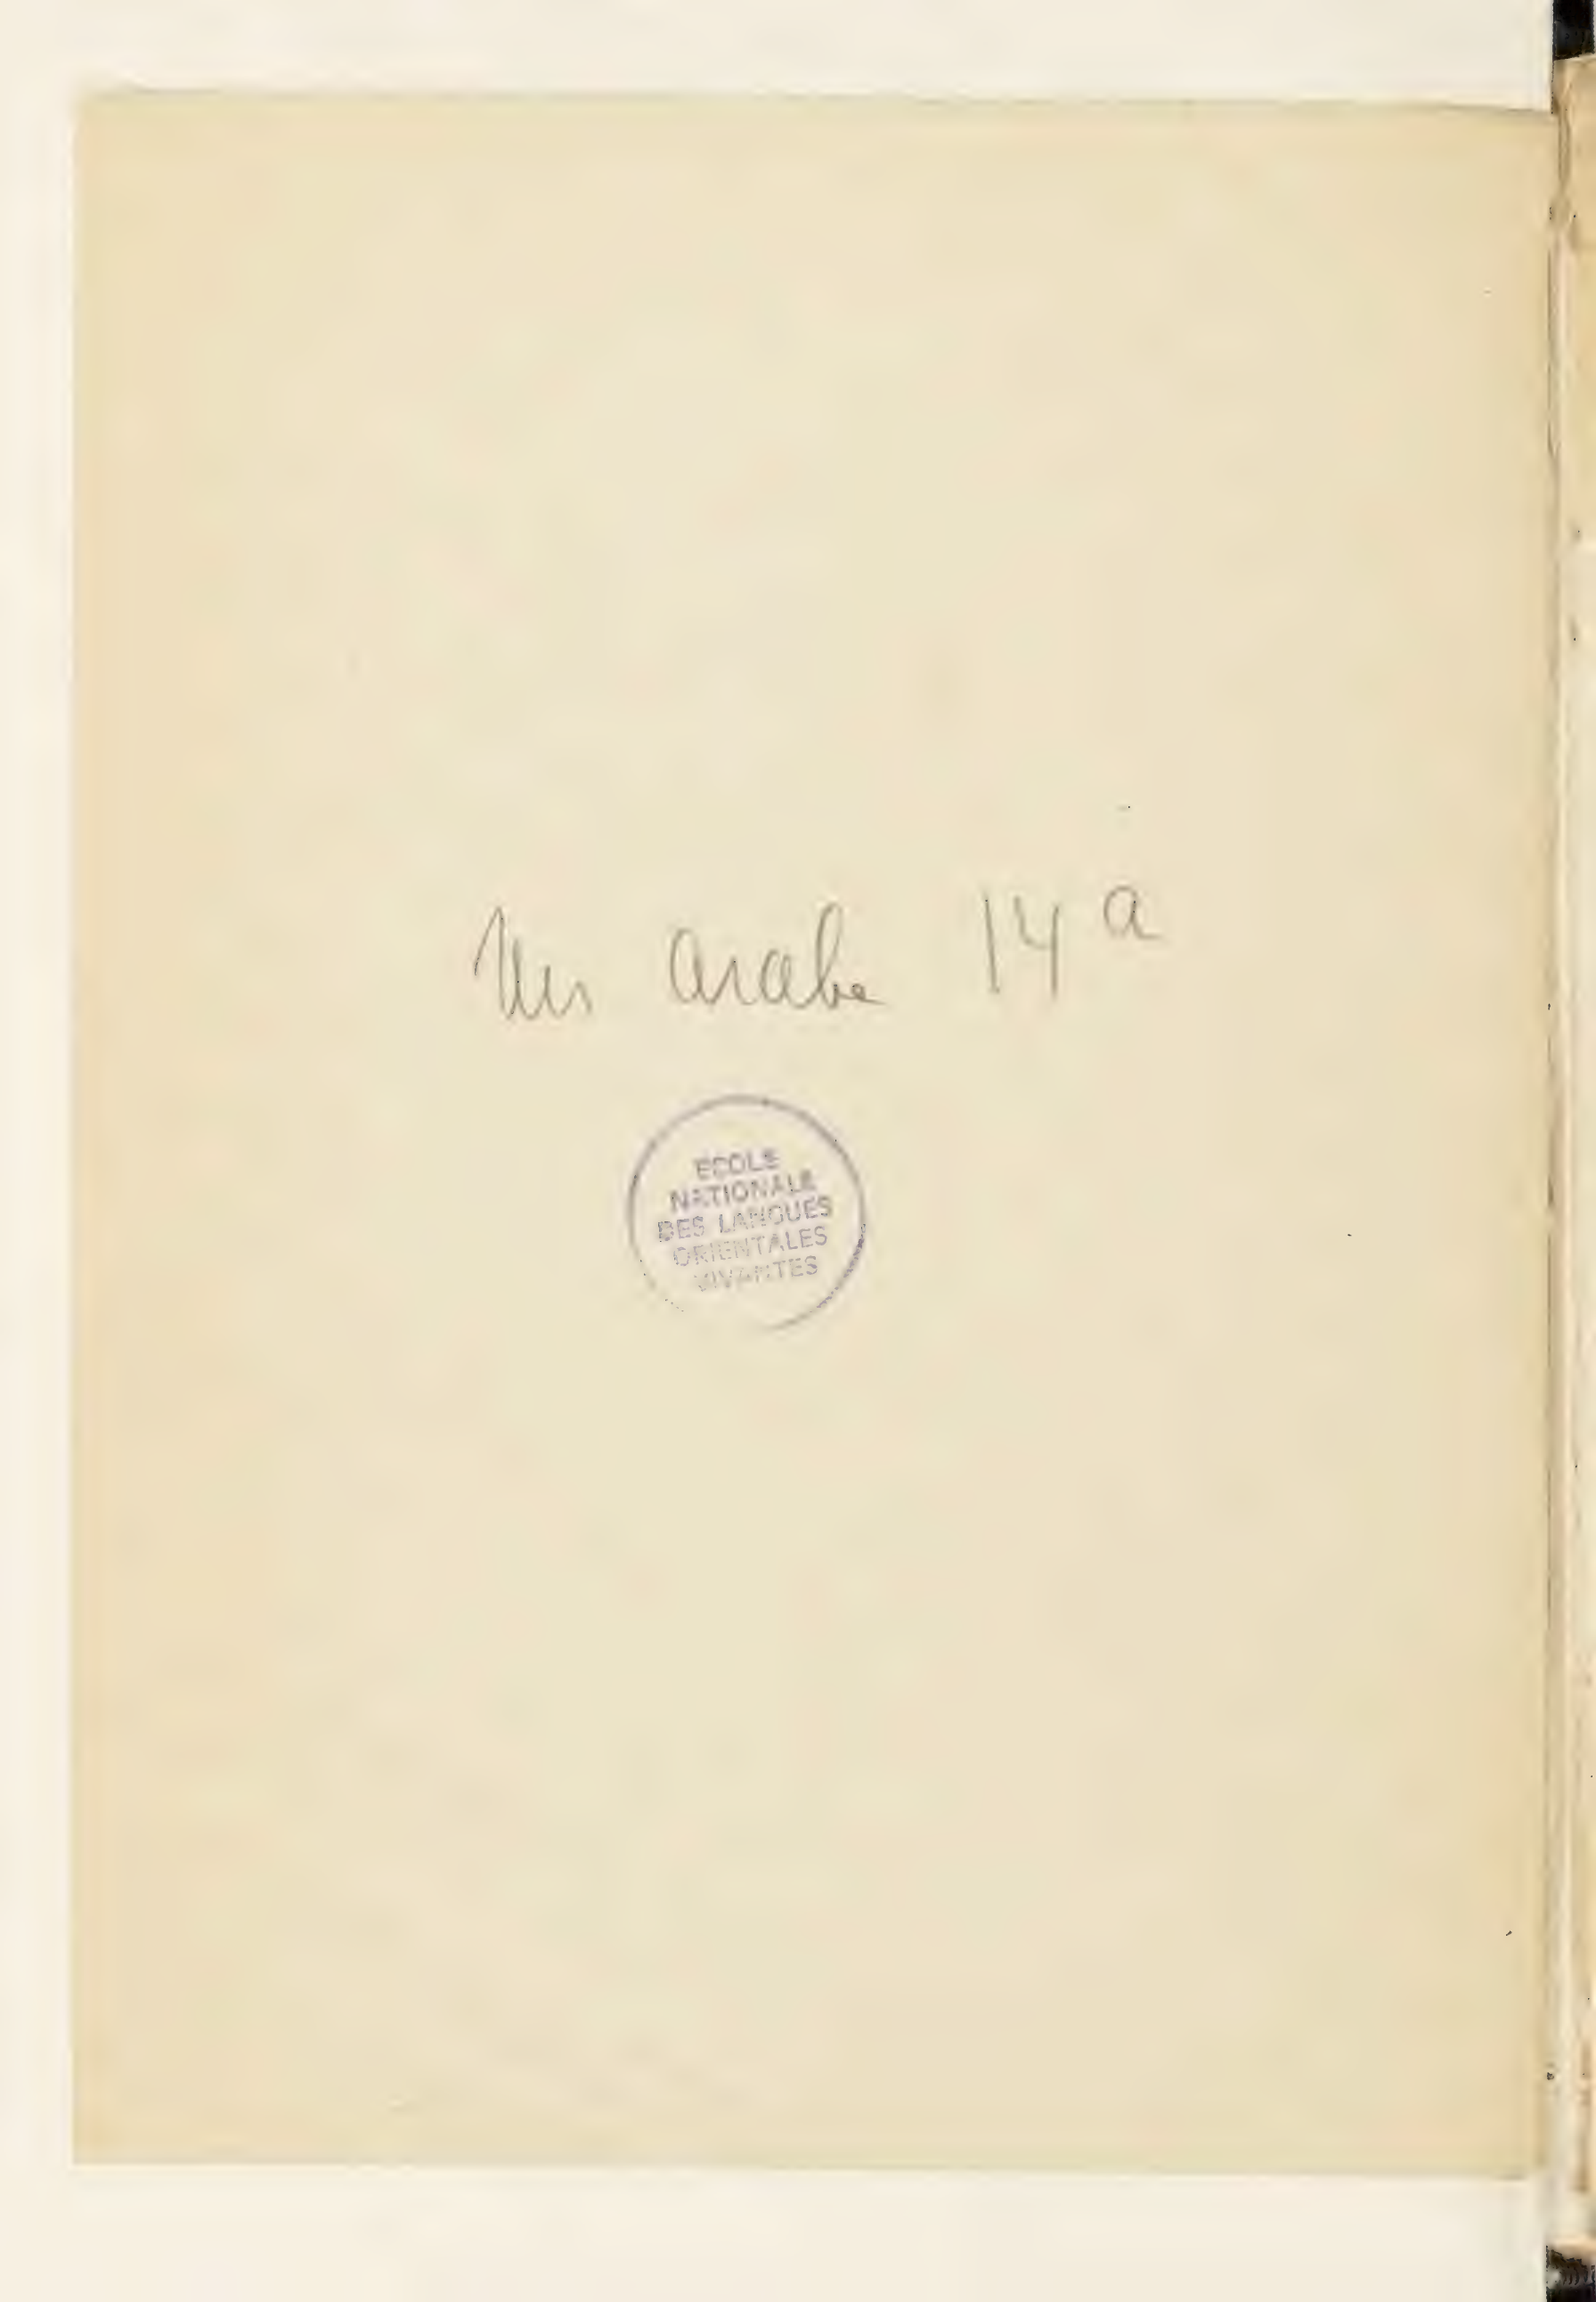 Ms arabe 14 a
ECOLE
NATIONALE
DES LANGUES
ORIENTALES
VIVANTES